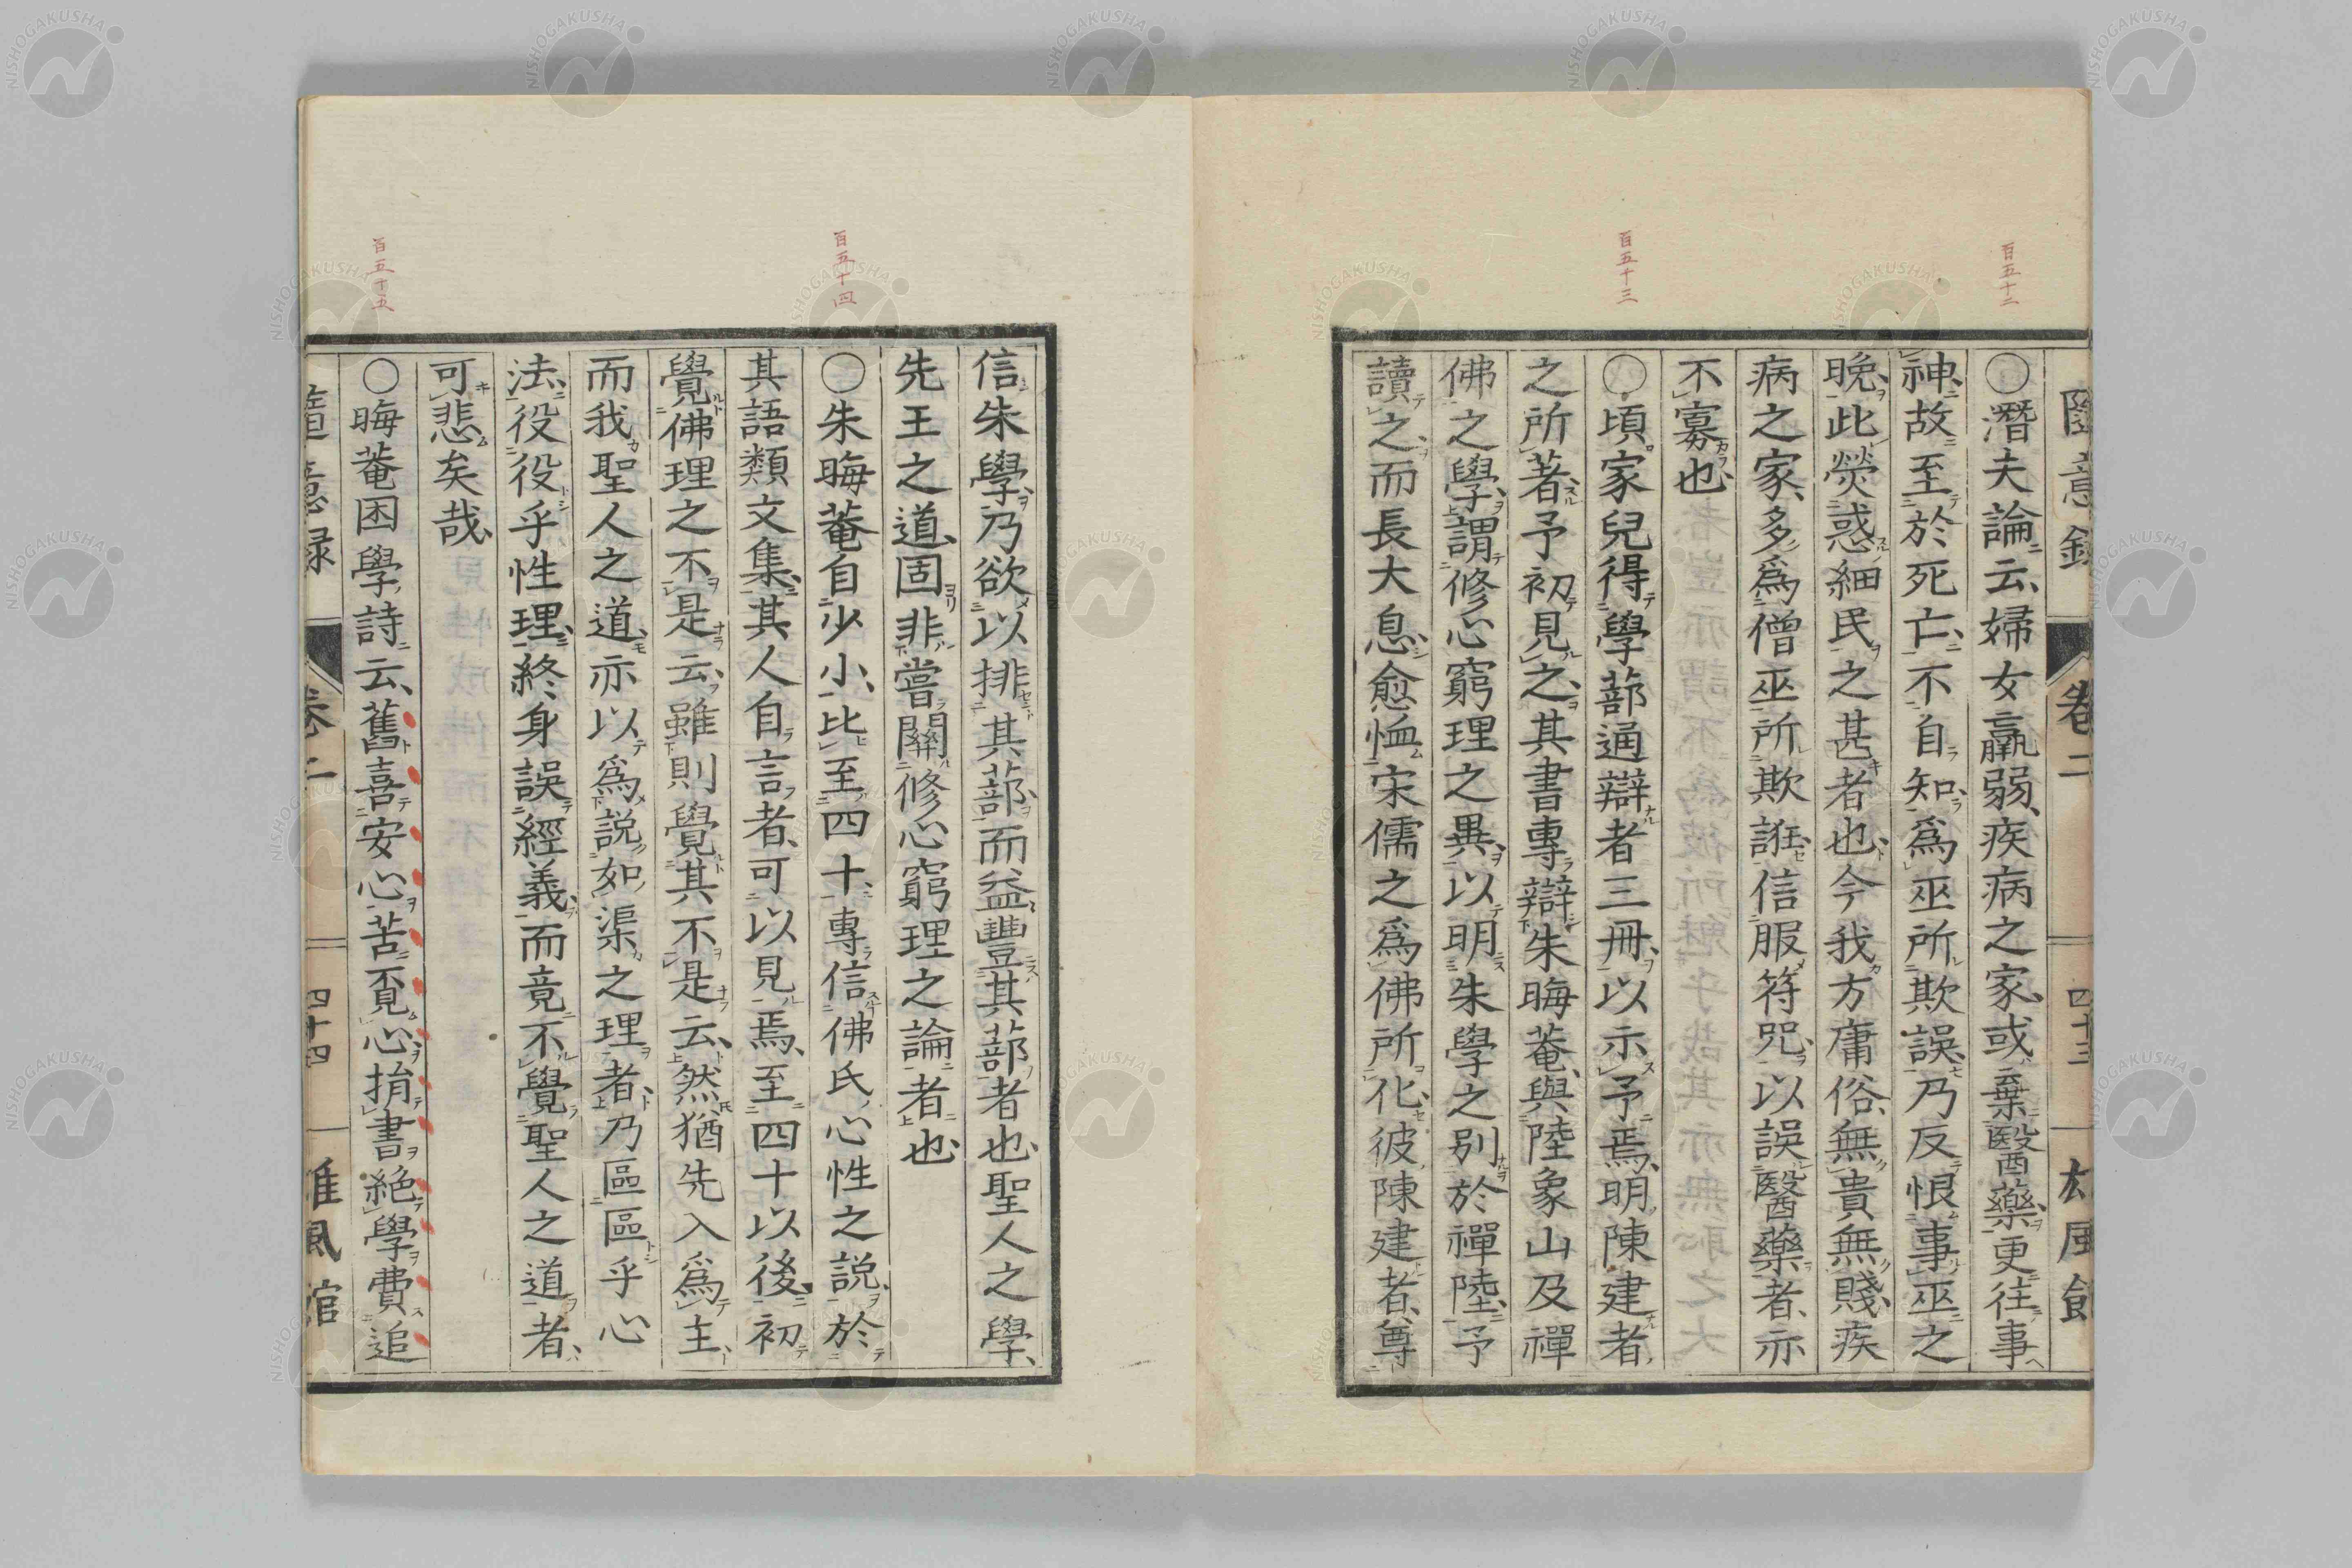 百五十二
百五十三
卷二
四十三
○潛夫論云、婦女羸弱、疾病之家、或棄醫藥、更往事
神、故至於死亡、不自知爲巫所欺誤、乃反恨事巫之
晚、此熒惑細民之甚者也、今我方庸俗、無貴無賤、疾
病之家、多爲僧巫所欺誑、信服符咒、以誤醫藥者、亦
不寡也、
○頃家兒得學蔀通辯者三冊、以示予焉、明陳建者
之所著、予初見之、其書專辯朱晦菴、與陸象山及禪
佛之學、謂修心窮理之異、以明朱學之別於禪陸、予
讀之、而長大息、愈恤宋儒之爲佛所化、彼陳建者、尊
百五十四
百五十五
信朱學、乃欲以排其蔀、而益豐其蔀者也、聖人之學、
先王之道、固非嘗關修心窮理之論者也、
○朱晦菴自少小、比至四十、專信佛氏心性之説、於
其語類文集、其人自言者、可以見焉、至四十以後、初
覺佛理之不是云、雖則覺其不是云、然猶先入爲主、
而我聖人之道、亦以爲説如渠之理者、乃區區乎心
法、役役乎性理、終身誤經義、而竟不覺聖人之道者、
可悲矣哉、
○晦菴困學詩云、舊喜安心苦覓心、捐書絶學費追
卷二
四十四